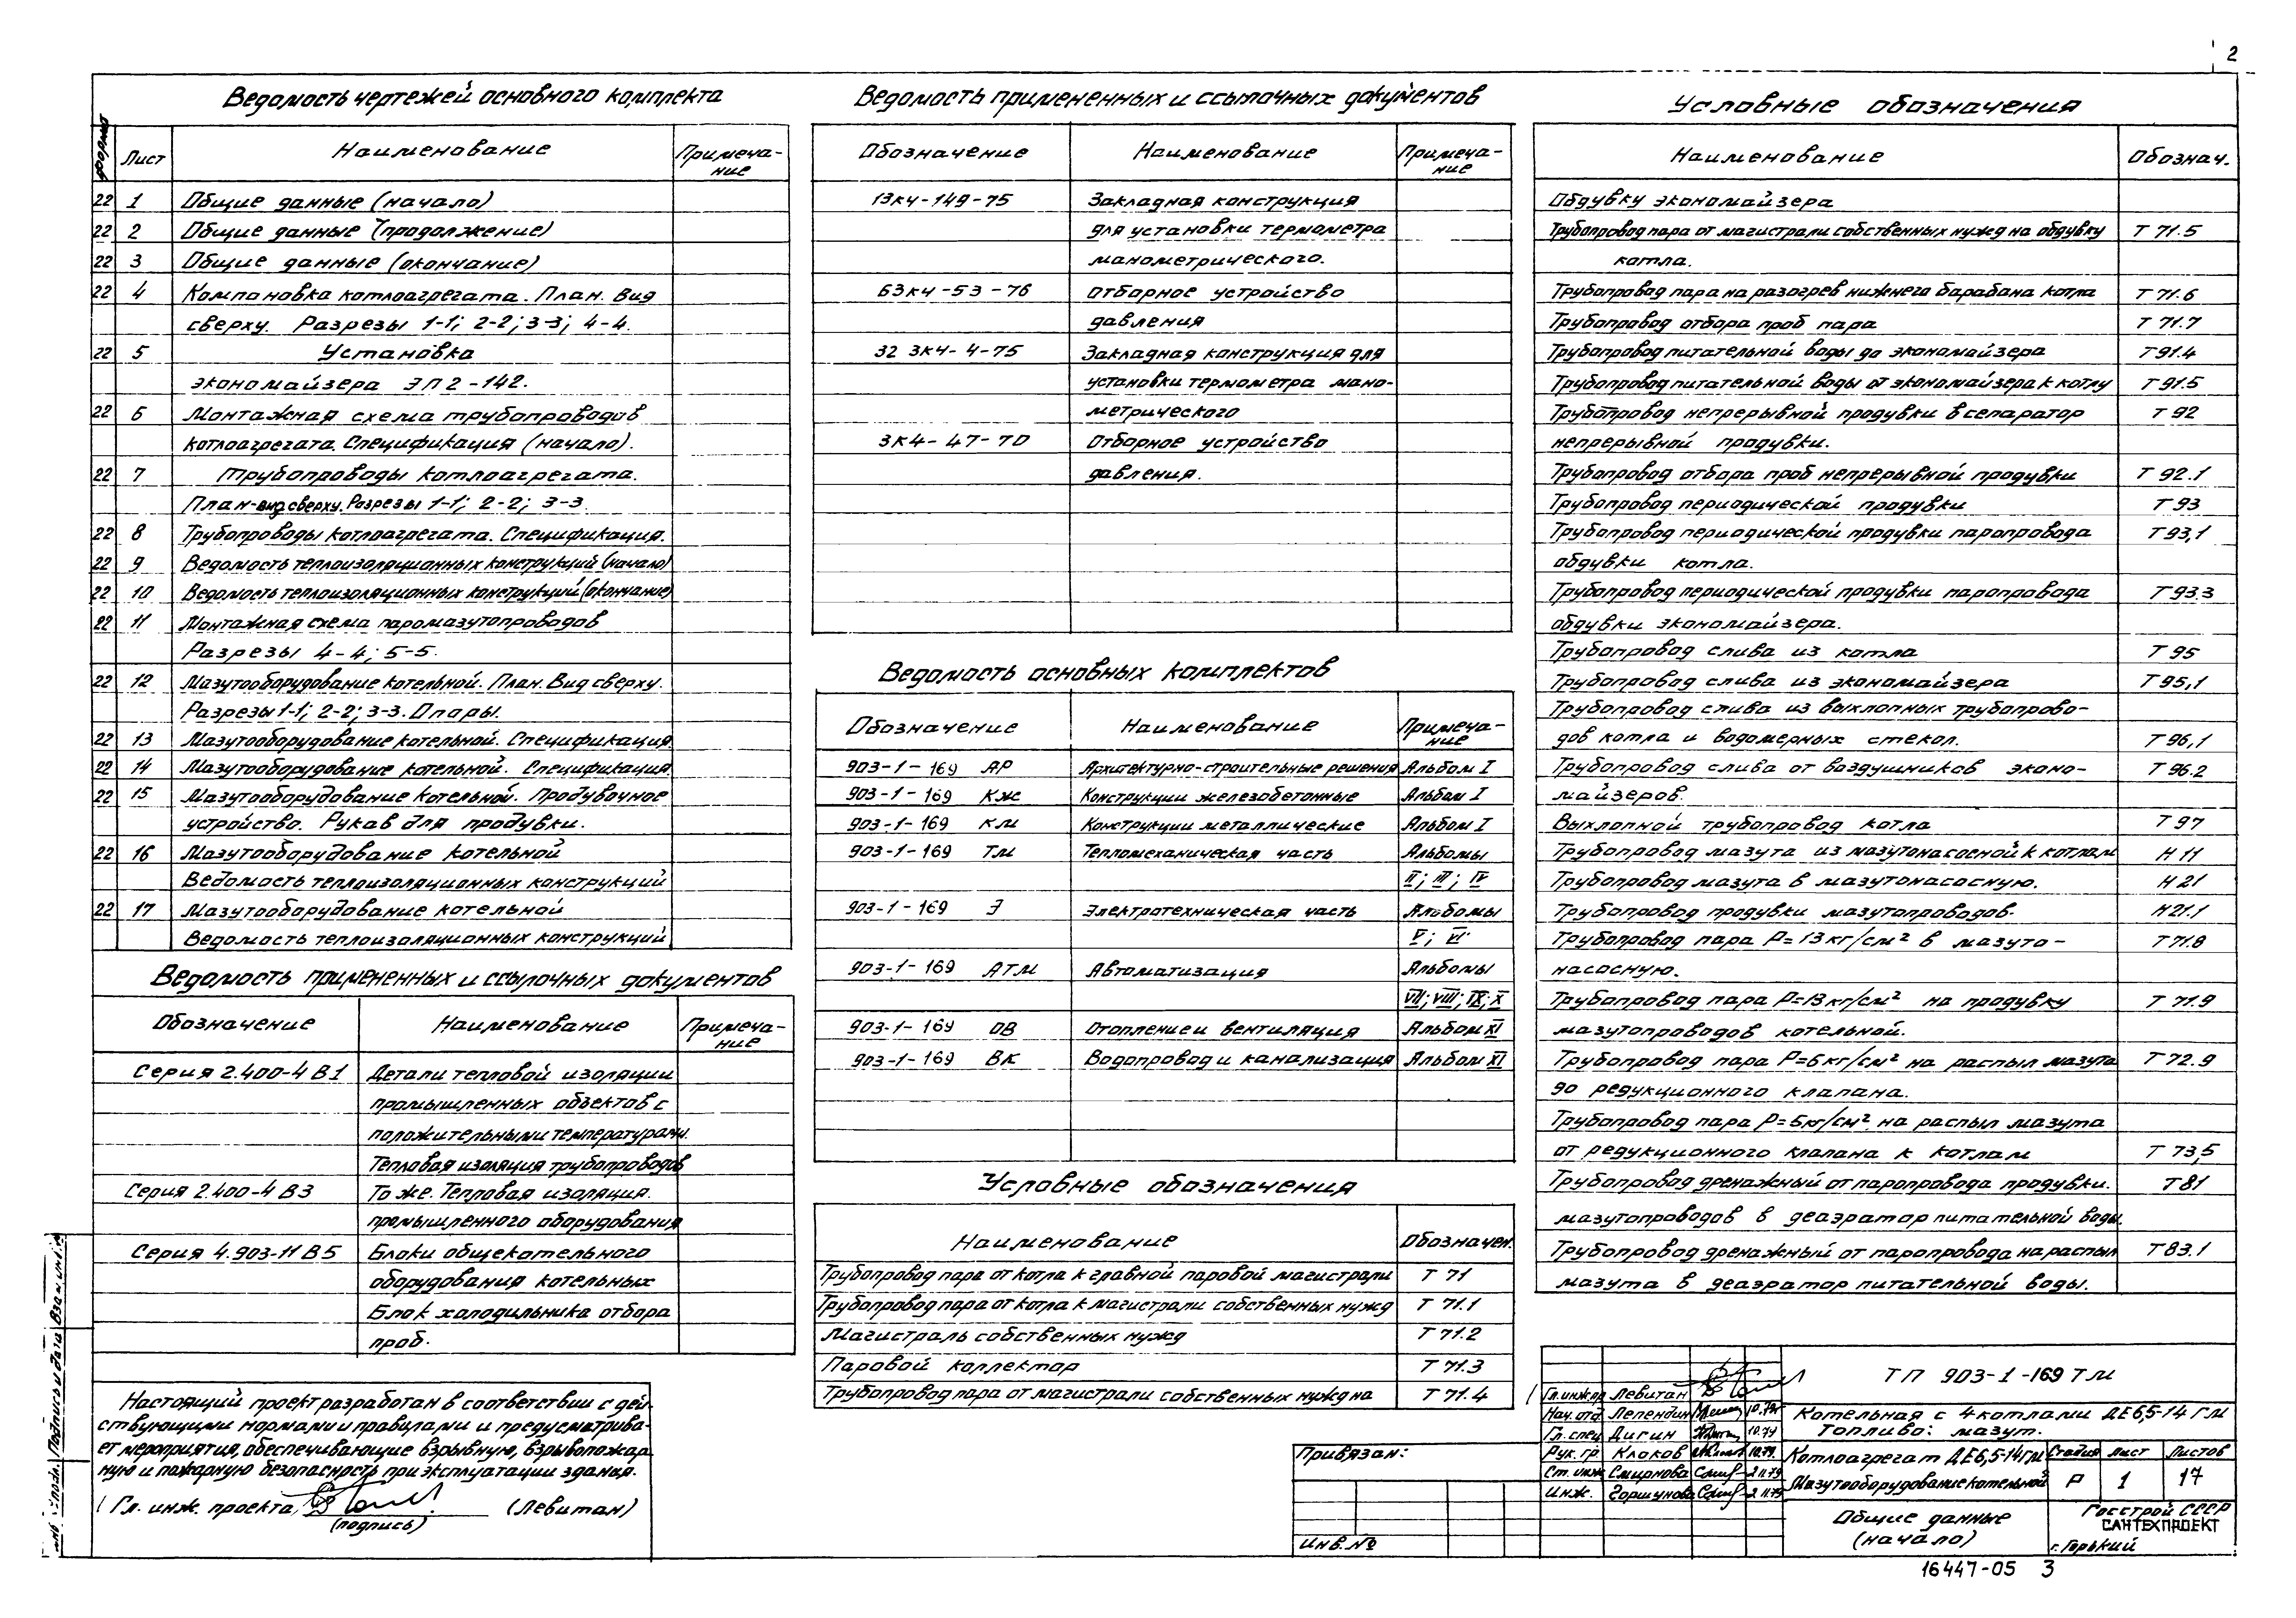 2
Ведомость чертежей основного комплекта
Формат Лист Наименование Примеча-
ние
22 1 Общие данные (начало)
22 2 Общие данные (продолжение)
22 3 Общие данные (окончание)
22 4 Компановка котлоагрегата. План. Вид
сверху. Разрезы 1-1; 2-2; 3-3; 4-4.
22 5 Установка
экономайзера ЭП2-142.
22 6 Монтажная схема трубопроводов
котлоагрегата. Спецификация (начало).
22 7 Трубопроводы котлоагрегата.
План-вид сверху. Разрезы 1-1; 2-2; 3-3.
22 8 Трубопроводы котлоагрегата. Спецификация.
22 9 Ведомость теплоизоляционных конструкций (начало)
22 10 Ведомость теплоизоляционных конструкций (окончание)
22 11 Монтажная схема паромазутопроводов
Разрезы 4-4; 5-5.
22 12 Мазутооборудование котельной. План. Вид сверху.
Разрезы 1-1; 2-2; 3-3. Опоры.
22 13 Мазутооборудование котельной. Спецификация
22 14 Мазутооборудование котельной. Спецификация
22 15 Мазутооборудование котельной. Продувочное
устройство. Рукав для продувки.
22 16 Мазутооборудование котельной
Ведомость теплоизоляционных конструкций
22 17 Мазутооборудование котельной
Ведомость теплоизоляционных конструкций
Ведомость примененных и ссылочных документов
Обозначение Наименование Примеча-
ние
Серия 2.400-4 В1 Детали тепловой изоляции
промышленных объектов с
положительными температурами.
Тепловая изоляция трубопроводов
Серия 2.400-4 В3 То же. Тепловая изоляция.
промышленного оборудования
Серия 4.903-11 В5 Блоки общекотельного
оборудования котельных
Блок холодильника отбора
проб.
Настоящий проект разработан в соответствии с дей-
ствующими нормами и правилами и предусматрива-
ет мероприятия, обеспечивающие взрывную, взрывопожар-
ную и пожарную безопасность при эксплуатации здания.
Гл. инж. проекта (Левитан)
(подпись)
Подпись и дата
Ведомость примененных и ссылочных документов
Обозначение Наименование Примеча-
ние
13К4-149-75 Закладная конструкция
для установки термометра
манометрического.
63К4-53-76 Отборное устройство
давления
32 3К4-4-75 Закладная конструкция для
установки термометра мано-
метрического
3К4-47-70 Отборное устройство
давления.
Ведомость основных комплектов
Обозначение Наименование Примеча-
ние
903-1-169 АР Архитектурно-строительные решения Альбом I
903-1-169 КЖ Конструкции железобетонные Альбом I
903-1-169 КМ Конструкции металлические Альбом I
903-1-169 ТМ Тепломеханическая часть Альбомы
II; III; IV
903-1-169 Э Электротехническая часть Альбомы
V; VI
903-1-169 АТМ Автоматизация Альбомы
VII; VIII; IX; X
903-1-169 ОВ Отопление и вентиляция Альбом XI
903-1-169 ВК Водопровод и канализация Альбом XI
Условные обозначения
Наименование Обозначен.
Трубопровод пара от котла к главной паровой магистрали Т 71
Трубопровод пара от котла к магистрали собственных нужд Т 71.1
Магистраль собственных нужд Т 71.2
Паровой коллектор Т 71.3
Трубопровод пара от магистрали собственных нужд на Т 71.4
Условные обозначения
Наименование Обознач.
Обдувку экономайзера
Трубопровод пара от магистрали собственных нужд на обдувку Т 71.5
котла.
Трубопровод пара на разогрев нижнего барабана котла Т 71.6
Трубопровод отбора проб пара Т 71.7
Трубопровод питательной воды до экономайзера Т 91.4
Трубопровод питательной воды от экономайзера к котлу Т 91.5
Трубопровод непрерывной продувки в сепаратор Т 92
непрерывной продувки.
Трубопровод отбора проб непрерывной продувки Т 92.1
Трубопровод периодической продувки Т 93
Трубопровод периодической продувки паропровода Т 93,1
обдувки котла.
Трубопровод периодической продувки паропровода Т 93.3
обдувки экономайзера.
Трубопровод слива из котла Т 95
Трубопровод слива из экономайзера Т 95,1
Трубопровод слива из выхлопных трубопрово-
дов котла и водомерных стекол. Т 96,1
Трубопровод слива от воздушников эконо- Т 96.2
майзеров.
Выхлопной трубопровод котла Т 97
Трубопровод мазута из мазутонасосной к котлам Н 11
Трубопровод мазута в мазутонасосную. Н 21
Трубопровод продувки мазутопроводов. Н 21.1
Трубопровод пара Р=13 кг/см² в мазуто- Т 71.8
насосную.
Трубопровод пара Р=13 кг/см² на продувку Т 71.9
мазутопроводов котельной.
Трубопровод пара Р=6 кг/см² на распыл мазута Т 72.9
до редукционного клапана.
Трубопровод пара Р=5 кг/см² на распыл мазута
от редукционного клапана к котлам Т 73,5
Трубопровод дренажный от паропровода продувки. Т 81
мазутопроводов в деаэратор питательной воды.
Трубопровод дренажный от паропровода на распыл Т 83.1
мазута в деаэратор питательной воды.
Привязан:
Инв.№
Гл.инж.пр Левитан
Нач.отд Лепендин 10.79
Гл.спец Дигин 10.79
Рук.гр Клоков 10.79
Ст.инж Смирнова 2.11.79
Инж. Горшунова 2.11.79
ТП 903-1-169 ТМ
Котельная с 4 котлами ДЕ6,5-14 ГМ
Топливо: мазут.
Котлоагрегат ДЕ6,5-14ГМ
Мазутооборудование котельной
Стадия Лист Листов
Р 1 17
Общие данные
(начало)
Госстрой СССР
САНТЕХПРОЕКТ
г. Горький
16447-05 3